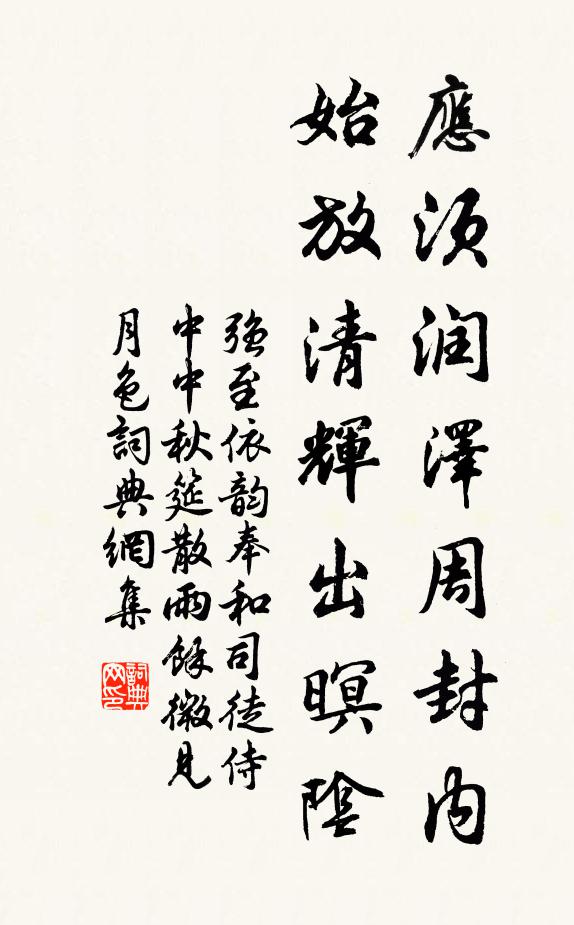 應須润澤周封内
始放清輝出暝陰
強至依韵奉和司徒侍
中中秋筵散雨餘微見
月色詞典網集
詞典
网印